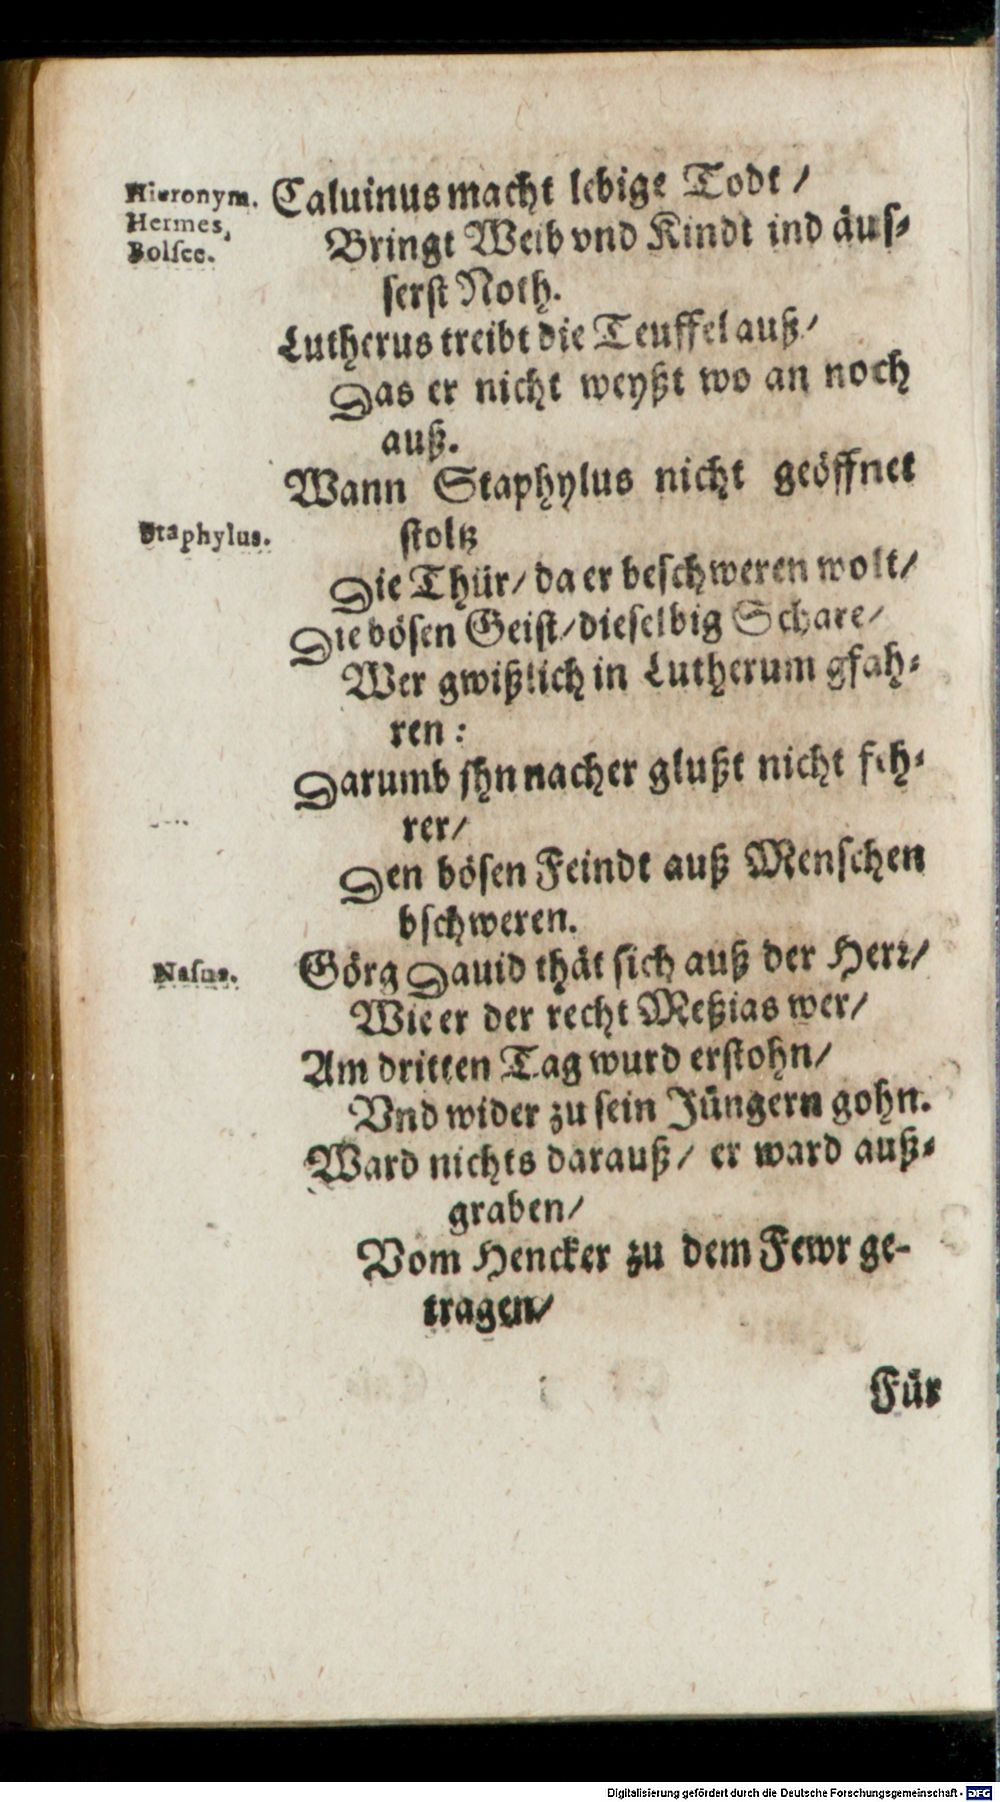 Hieronym.
Hermes,
Bolsec.
Caluinus macht lebige Todt /
Bringt Weib vnd Kindt ind äus-
serst Noth.
Lutherus treibt die Teuffel auß /
Das er nicht weyßt wo an noch
auß.
Wann Staphylus nicht geöffnet
stoltz
Staphylus.
Die Thür / da er beschweren wolt /
Die bösen Geist / dieselbig Schare /
Wer gwißlich in Lutherum gfah-
ren :
Darumb jhn nacher glußt nicht feh-
rer /
Den bösen Feindt auß Menschen
bschweren.
Nasus.
Görg Dauid thät sich auß der Herr /
Wie er der recht Meßias wer /
Am dritten Tag wurd erstohn /
Vnd wider zu sein Jüngern gohn.
Ward nichts darauß / er ward auß-
graben /
Vom Hencker zu dem Fewr ge-
tragen /
Für
Digitalisierung gefördert durch die Deutsche Forschungsgemeinschaft - DFG